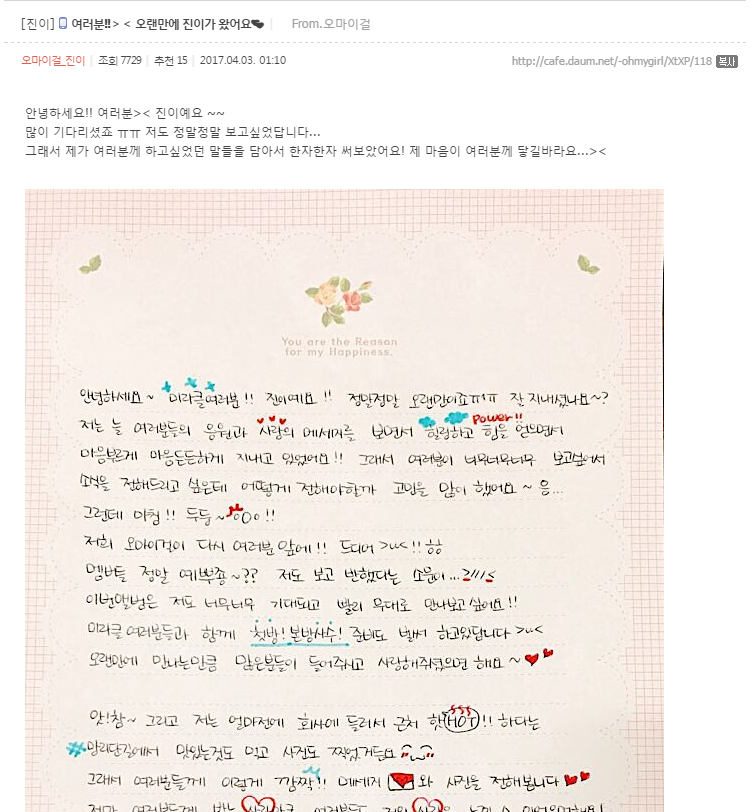 [진이] 여러분!! > < 오랜만에 진이가 왔어요 From.오마이걸
오마이걸_진이 조회 7729 추천 15 2017.04.03. 01:10 http://cafe.daum.net/-ohmygirl/XtXP/118 복사
안녕하세요!! 여러분>< 진이예요 ~~
많이 기다리셨죠 ㅠㅠ 저도 정말정말 보고싶었답니다...
그래서 제가 여러분께 하고싶었던 말들을 담아서 한자한자 써보았어요! 제 마음이 여러분께 닿길바라요...><
You are the Reason
for my Happiness.
안녕하세요~ 미라클여러분!! 진이예요!! 정말정말 오랜만이죠ㅠㅠ 잘 지내셨나요~?
power!!
저는 늘 여러분들의 응원과 사랑의 메세지를 보면서 힐링하고 힘을 얻으면서
마음부르게 마음든든하게 지내고 있었어요!! 그래서 여러분이 너무너무너무 보고싶어서
소식을 전해드리고 싶은데 어떻게 전해야할까 고민을 많이 했어요~ 음...
그런데 마침!! 두둥~ !!
저희 오마이걸이 다시 여러분 앞에!! 드디어 >ω< !! ㅎㅎ
멤버들 정말 예쁘죵~?? 저도 보고 반했다는 소문이...
이번앨범은 저도 너무너무 기대되고 빨리 무대로 만나보고 싶어요!!
미라클 여러분들과 함께 첫방! 본방사수! 준비도 벌써 하고있답니다 >ω<
오랜만에 만나는만큼 많은분들이 들어주시고 사랑해주셨으면 해요~
앗!참~ 그리고 저는 얼마전에 회사에 들러서 근처 핫(HOT)!! 하다는
#망리단길에서 맛있는것도 먹고 사진도 찍었거든요
그래서 여러분들께 이렇게 깜짝!! 메세지 와 사진을 전해봅니다